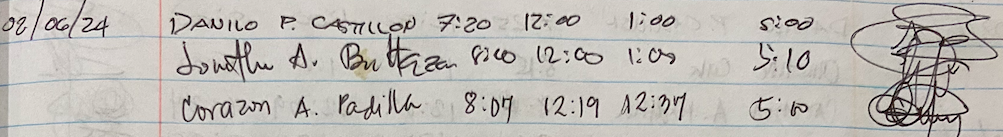 02/06/24 DANILO P. CASTILLON 7:20 12:00 1:00 5:00
A. 8:00 12:00 1:00 5:10
Corazon A. Padilla 8:07 12:19 12:37 5:00